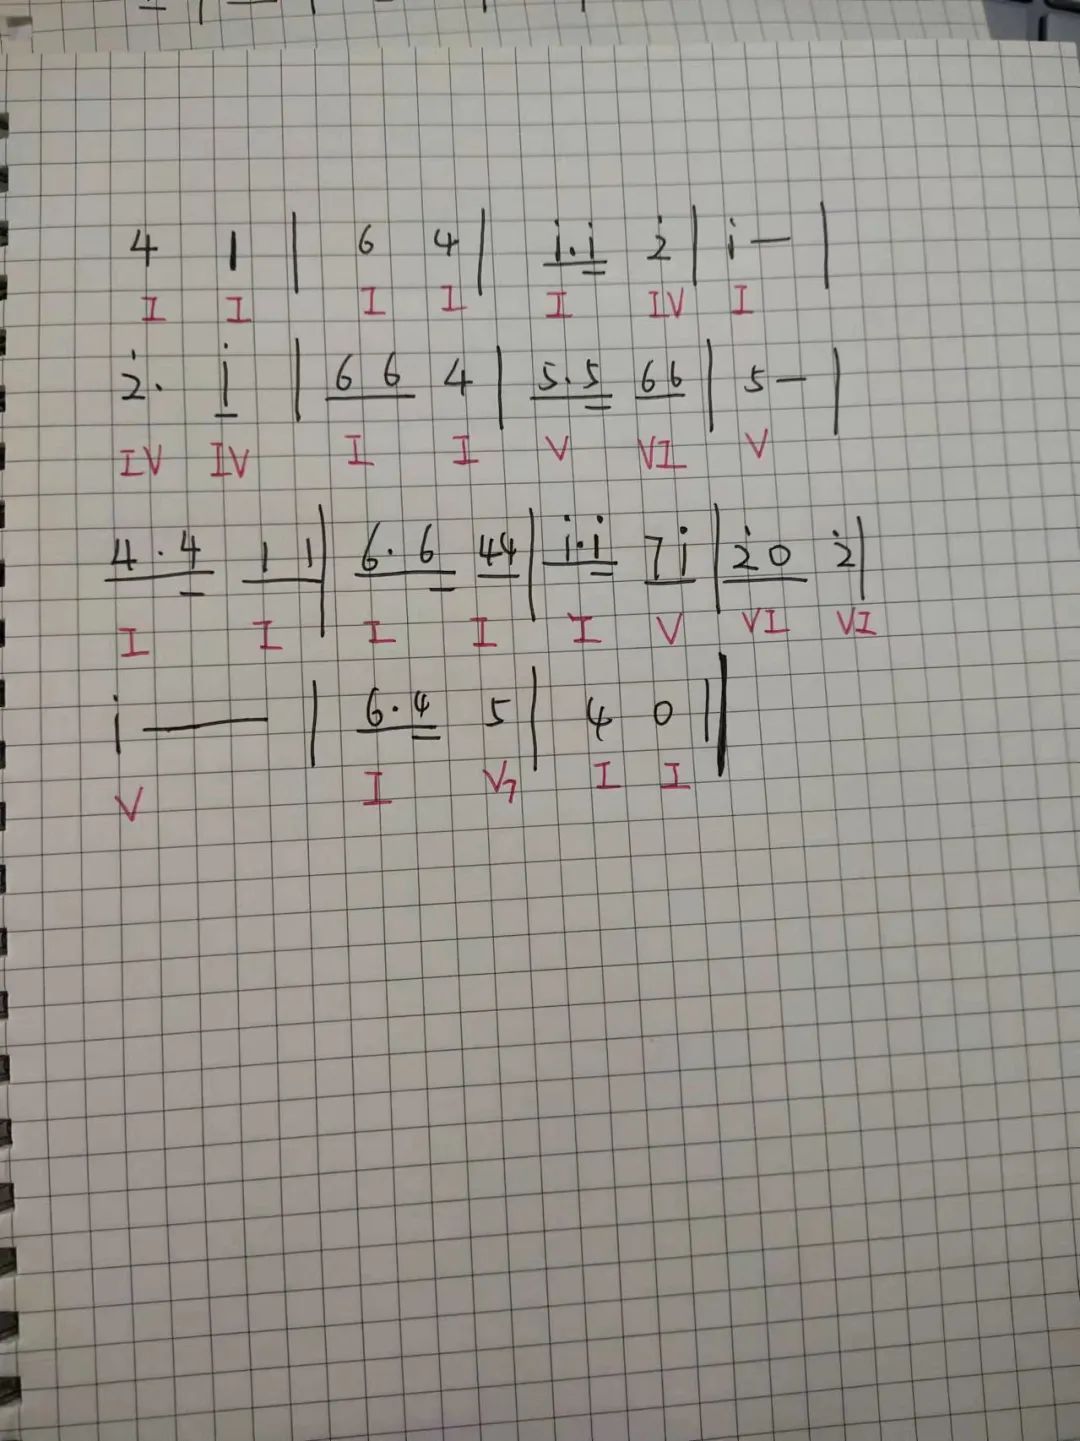 4 1 | 6 4 | i.i 2̇ | i — |
I I I I I IV I
2̇. i | 6 6 4 | 5.5 66 | 5 — |
IV IV I I V VI V
4.4 1 1 | 6.6 44 | i.i 7i | 2̇0 2̇ |
I I I I I V VI VI
i — | 6.4 5 | 4 0 ||
V I V7 I I